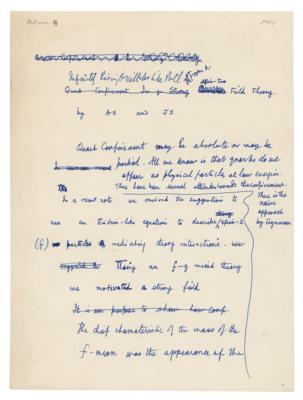 Salam
Infinitely Rising Oscillator-like Potl from a
Quark Confinement in a Strong spin-two Field Theory.
by AS and JS
Quark Confinement may be absolute or may be
partial. All we know is that quarks do not
appear as physical particles at low energies.
There have been several attitudes towards the confinement.
There is the
naive
approach
by
In a recent note we revived the suggestion to
use an Einstein-like equation to describe spin-2
(f) particles mediating strong interactions. We
Using an f-g mixed theory
we motivated a strong field
It is our purpose to show how conf
The chief characteristic of the mass of the
f-meson was the appearance of the